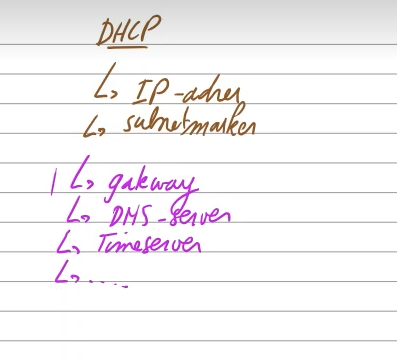 DHCP
↳ IP-adres
↳ subnetmasker
↳ gateway
↳ DNS-server
↳ Timeserver
↳ .....